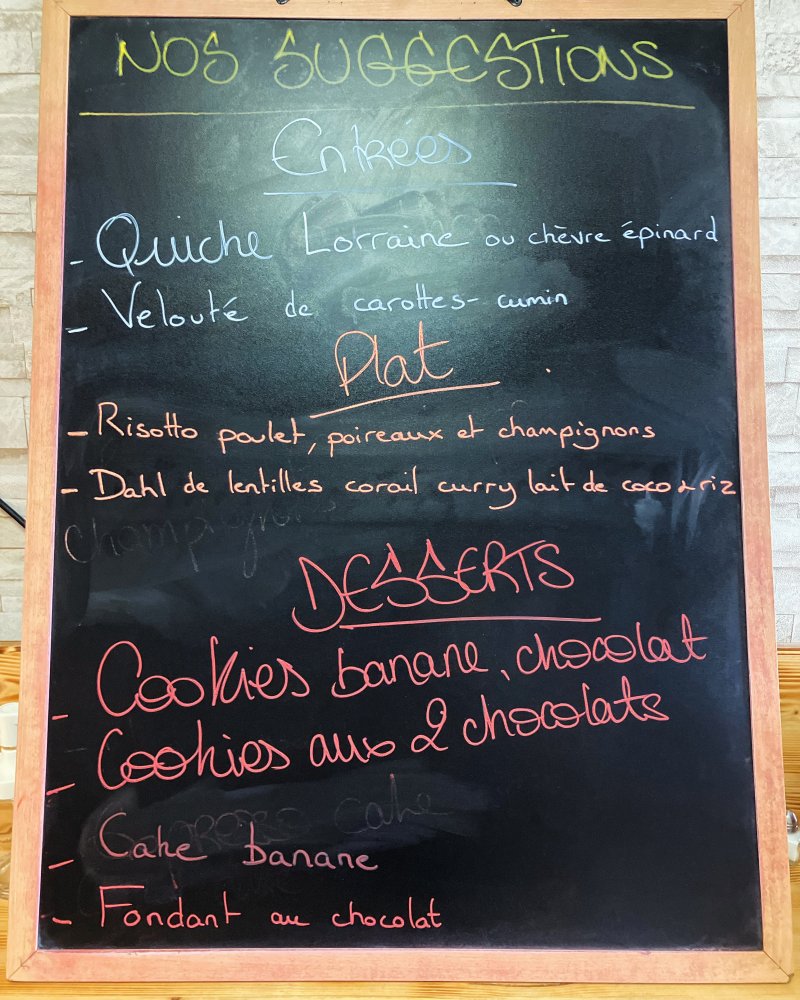 NOS SUGGESTIONS
Entrées
- Quiche Lorraine ou chèvre épinard
- Velouté de carottes-cumin
Plat
- Risotto poulet, poireaux et champignons
- Dahl de lentilles corail curry lait de coco & riz
champignons
DESSERTS
- Cookies banane, chocolat
- Cookies aux 2 chocolats
cake
- Cake banane
- Fondant au chocolat